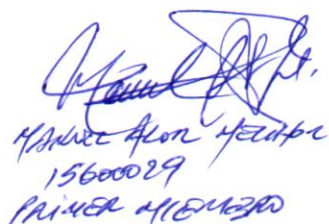 MANUEL ALOR
15600029
PRIMER MIEMBRO